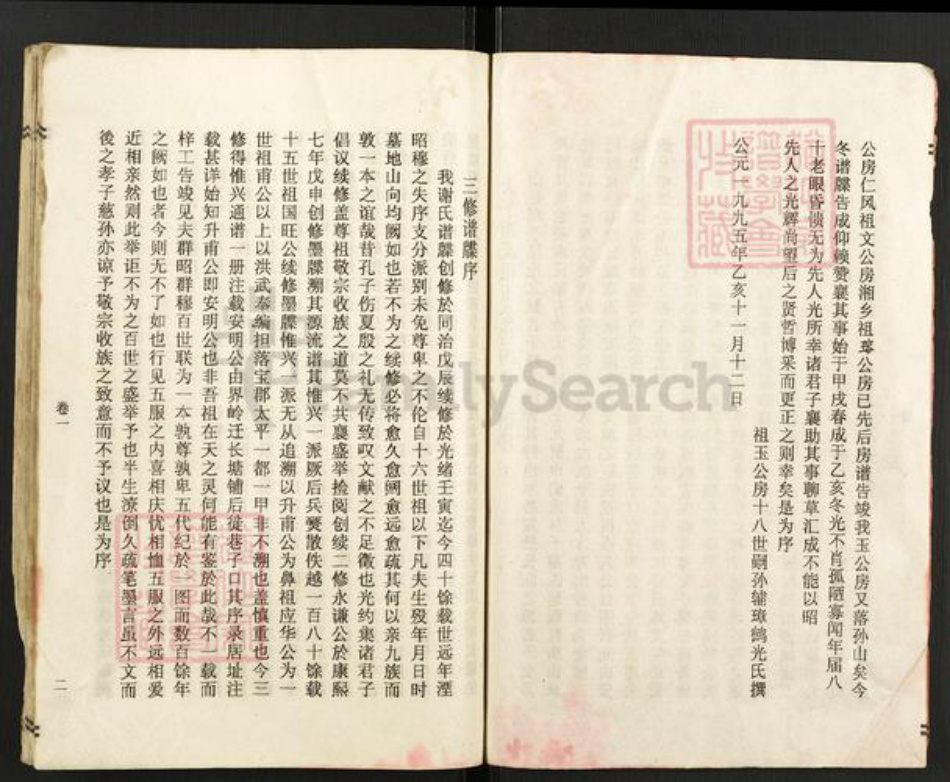 公房仁风祖文公房湘乡祖璆公房已先后房谱告竣我玉公房又落孙山矣今
冬谱牒告成仰赖赞襄其事始于甲戌春成于乙亥冬光不肖孤陋寡闻年届八
十老眼昏愦无为先人光所幸诸君子襄助其事聊草汇成不能以昭
先人之光辉尚望后之贤哲博采而更正之则幸矣是为序
祖玉公房十八世嗣孙辅璋鹤光氏撰
公元一九九五年乙亥十一月十二日
三修谱牒序
我谢氏谱牒创修於同治戊辰续修於光绪壬寅迄今四十馀载世远年湮
昭穆之失序支分派别未免尊卑之不伦自十六世祖以下凡夫生殁年月日时
墓地山向均阙如也若不为之续修必将愈久愈阙愈远愈疏其何以亲九族而
敦一本之谊哉昔孔子伤夏殷之礼无传致叹文献之不足徵也光约集诸君子
倡议续修盖尊祖敬宗收族之道莫不共襄盛举检阅创续二修永谦公於康熙
七年戊申创修墨牒溯其源流谱其惟兴一派厥后兵燹散佚越一百八十馀载
十五世祖国旺公续修墨牒惟兴一派无从追溯以升甫公为鼻祖应华公为一
世祖甫公以上以洪武奉编担落宝郡太平一都一甲非不溯也盖慎重也今三
修得惟兴通谱一册注载安明公由界岭迁长塘铺后徒巷子口其序录居址注
载甚详始知升甫公即安明公也非吾祖在天之灵何能有鉴於此哉不一载而
梓工告竣见夫群昭群穆百世联为一本孰尊孰卑五代纪於一图而数百馀年
之阙如也者今则无不了如也行见五服之内喜相庆忧相恤五服之外远相爱
近相亲然则此举讵不为之百世之盛举予也半生潦倒久疏笔墨言虽不文而
後之孝子慈孙亦谅予敬宗收族之致意而不予议也是为序
卷一
二
FamilySearch